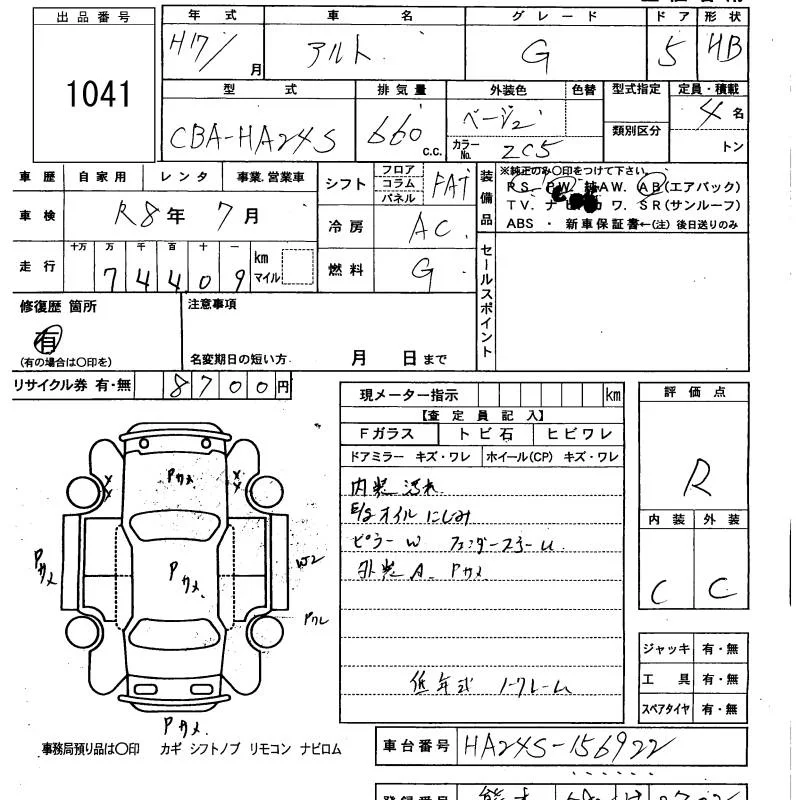 出品番号
1041
年式 車名 グレード ドア 形状
H17/ 月 アルト G 5 HB
型式 排気量 外装色 色替 型式指定 定員・積載
CBA-HA24S 660 c.c. ベージュ 4 名
カラーNo. ZC5 類別区分 トン
車歴 自家用 レンタ 事業.営業車 シフト フロア コラム パネル FAT
装備品 ※純正のみ〇印をつけて下さい
P.S. P.W. 純AW. AB(エアバック)
TV. ナビ カワ. SR(サンルーフ)
ABS ・ 新車保証書←(注) 後日送りのみ
車検 R8年 7月 冷房 AC
走行 十万 万 千 百 十 一 km マイル
74409
燃料 G
セールスポイント
修復歴 箇所 注意事項
有
(有の場合は〇印を) 名変期日の短い方. 月 日まで
リサイクル券 有・無 8700円
現メーター指示 km
【査定員記入】
Fガラス トビ石 ヒビワレ
ドアミラー キズ・ワレ ホイール(CP) キズ・ワレ
内装 汚れ
E/gオイルにじみ
ピラーW
外装A. Pカメ
低年式 ノークレーム
評価点
R
内装 外装
C C
Pカメ
Pカメ
Pカメ
W2
Pカメ
ジャッキ 有・無
工具 有・無
スペアタイヤ 有・無
事務局預り品は〇印 カギ シフトノブ リモコン ナビロム
車台番号 HA24S-156922
登録番号 熊本